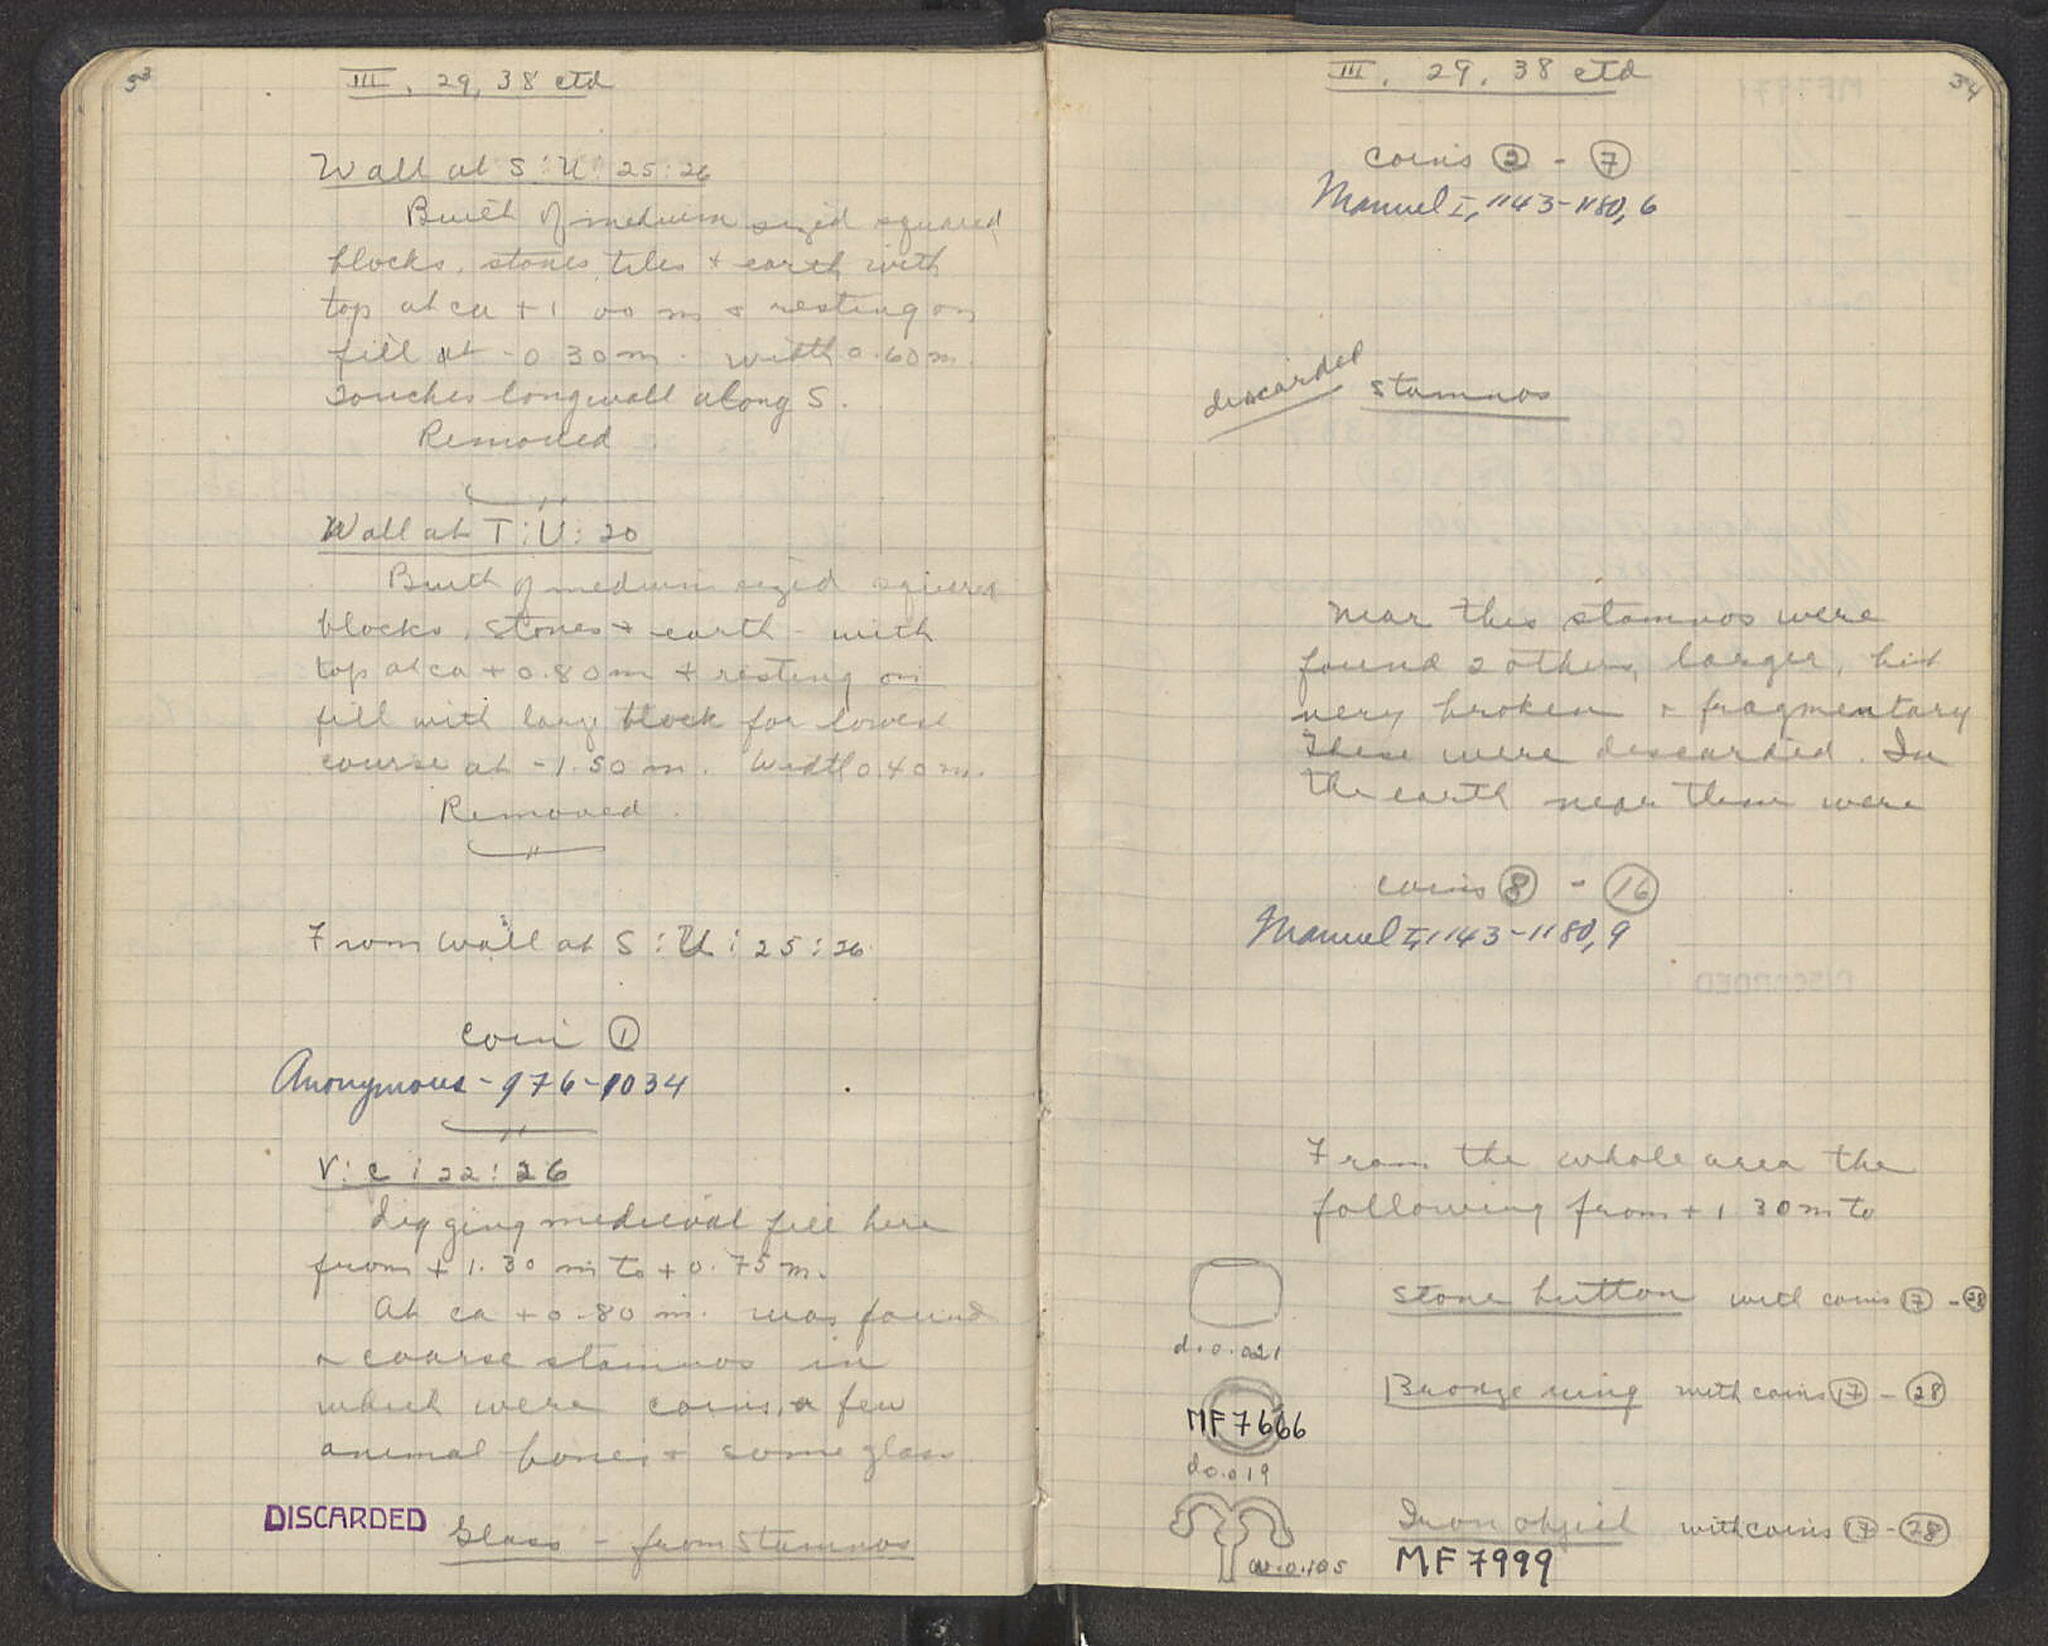 53
III, 29, 38 ctd
Wall at S:U:25:26
Built of medium sized squared
blocks, stones, tiles + earth with
top at ca +1 00 m + resting on
fill at -0 30 m. width 0.60 m.
Touches long wall along S.
Removed
Wall at T:U:20
Built of medium sized squared
blocks, stones + earth - with
top at ca +0.80 m + resting on
fill with large block for lowest
course at -1.50 m. Width 0.40 m.
Removed.
From wall at S:U:25:26
Coin ①
Anonymous - 976-1034
V:C:22:26
Digging medieval fill here
from +1.30 m to +0.75 m.
At ca +0.80 m. was found
a coarse stamnos in
which were coins, a few
animal bones + some glass
DISCARDED
Glass - from stamnos
34
III. 29, 38 ctd
coins ② - ⑦
Manuel I, 1143-1180, 6
discarded
stamnos
Near this stamnos were
found 2 others, larger, but
very broken + fragmentary
These were discarded. In
the earth near them were
coins ⑧ - ⑯
Manuel I, 1143-1180, 9
From the whole area the
following from +1 30 m to
stone button with coins ⑰ - ㉘
d. 0.021
Bronze ring with coins ⑰ - ㉘
MF 7666
d 0.019
Iron object with coins ⑰ - ㉘
w. 0.105
MF 7999